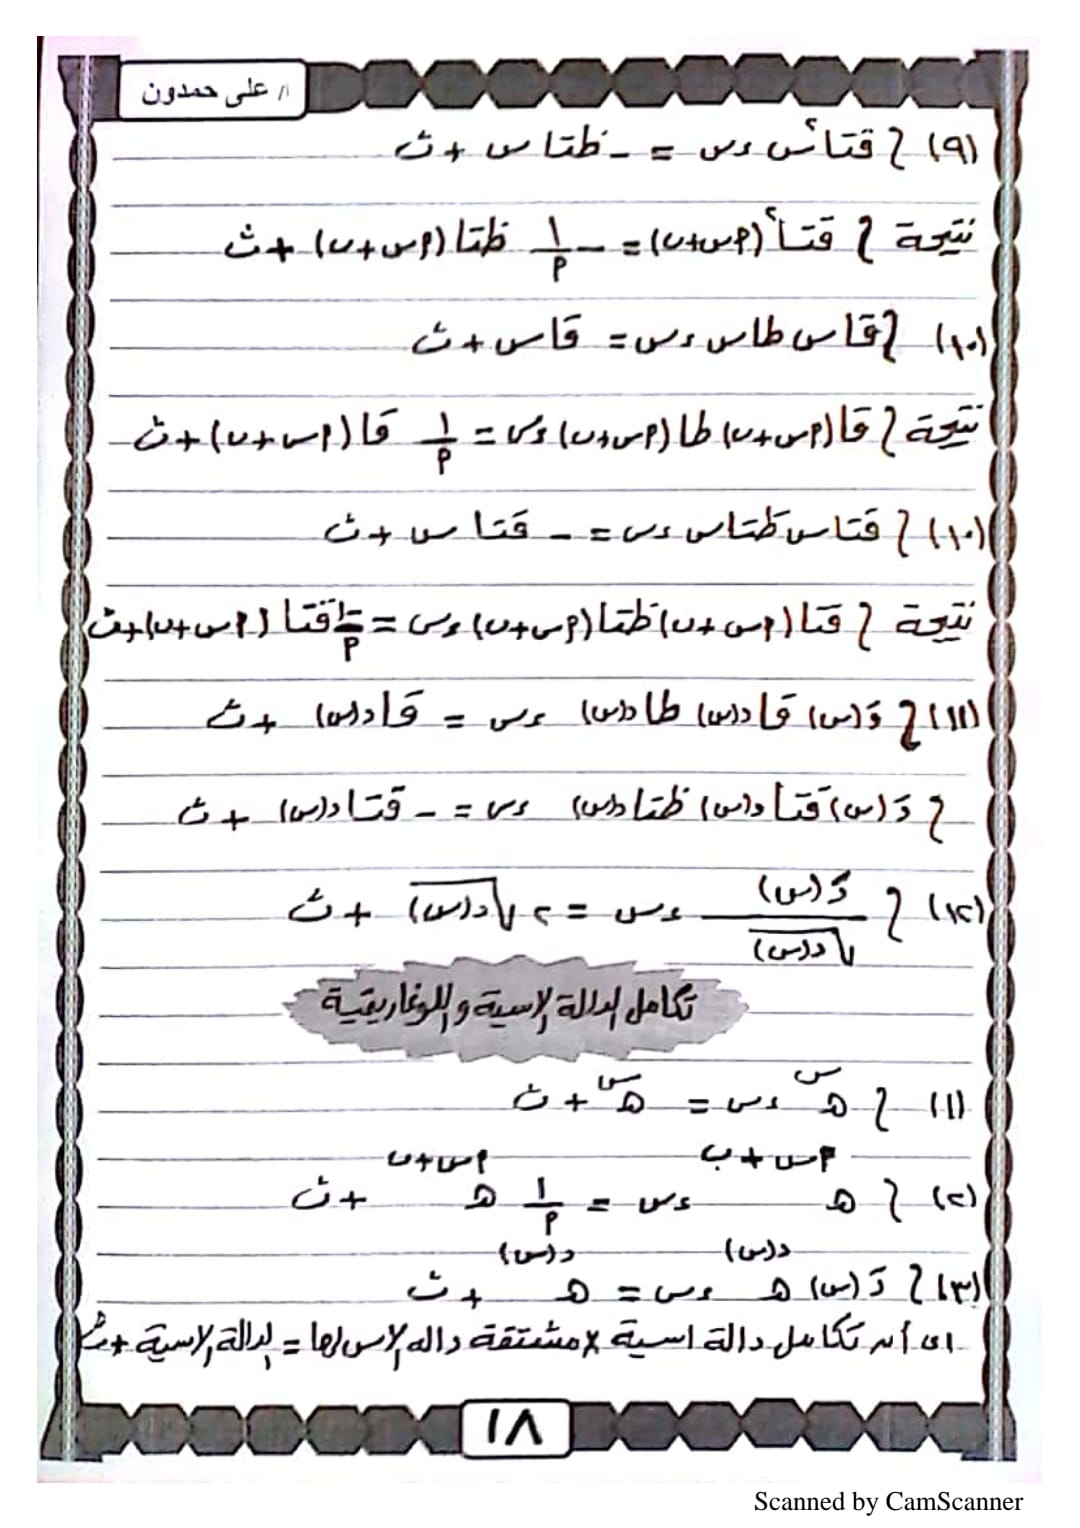 أ/ على حمدون
(٩) ∫ قتا٢س ءس = - ظتا س + ث
نتيجة ∫ قتا٢(أس+ب) = - ١/أ ظتا (أس+ب) + ث
(١٠) ∫ قاس طاس ءس = قاس + ث
نتيجة ∫ قا(أس+ب) طا(أس+ب) ءس = ١/أ قا(أس+ب) + ث
(١٠) ∫ قتاس ظتاس ءس = - قتا س + ث
نتيجة ∫ قتا(أس+ب) ظتا(أس+ب) ءس = -١/أ قتا(أس+ب) + ث
(١١) ∫ دَ(س) قا د(س) طا د(س) ءس = قا د(س) + ث
∫ دَ(س) قتا د(س) ظتا د(س) ءس = - قتا د(س) + ث
(١٢) ∫ دَ(س)/√د(س) ءس = ٢√د(س) + ث
تكامل الدالة الاسية و اللوغاريتمية
(١) ∫ هـ^س ءس = هـ^س + ث
(٢) ∫ هـ^(أس+ب) ءس = ١/أ هـ^(أس+ب) + ث
(٣) ∫ دَ(س) هـ^د(س) ءس = هـ^د(س) + ث
اى أن تكامل دالة اسية × مشتقة داله الاس لها = الدالة الاسية + ث
١٨
Scanned by CamScanner